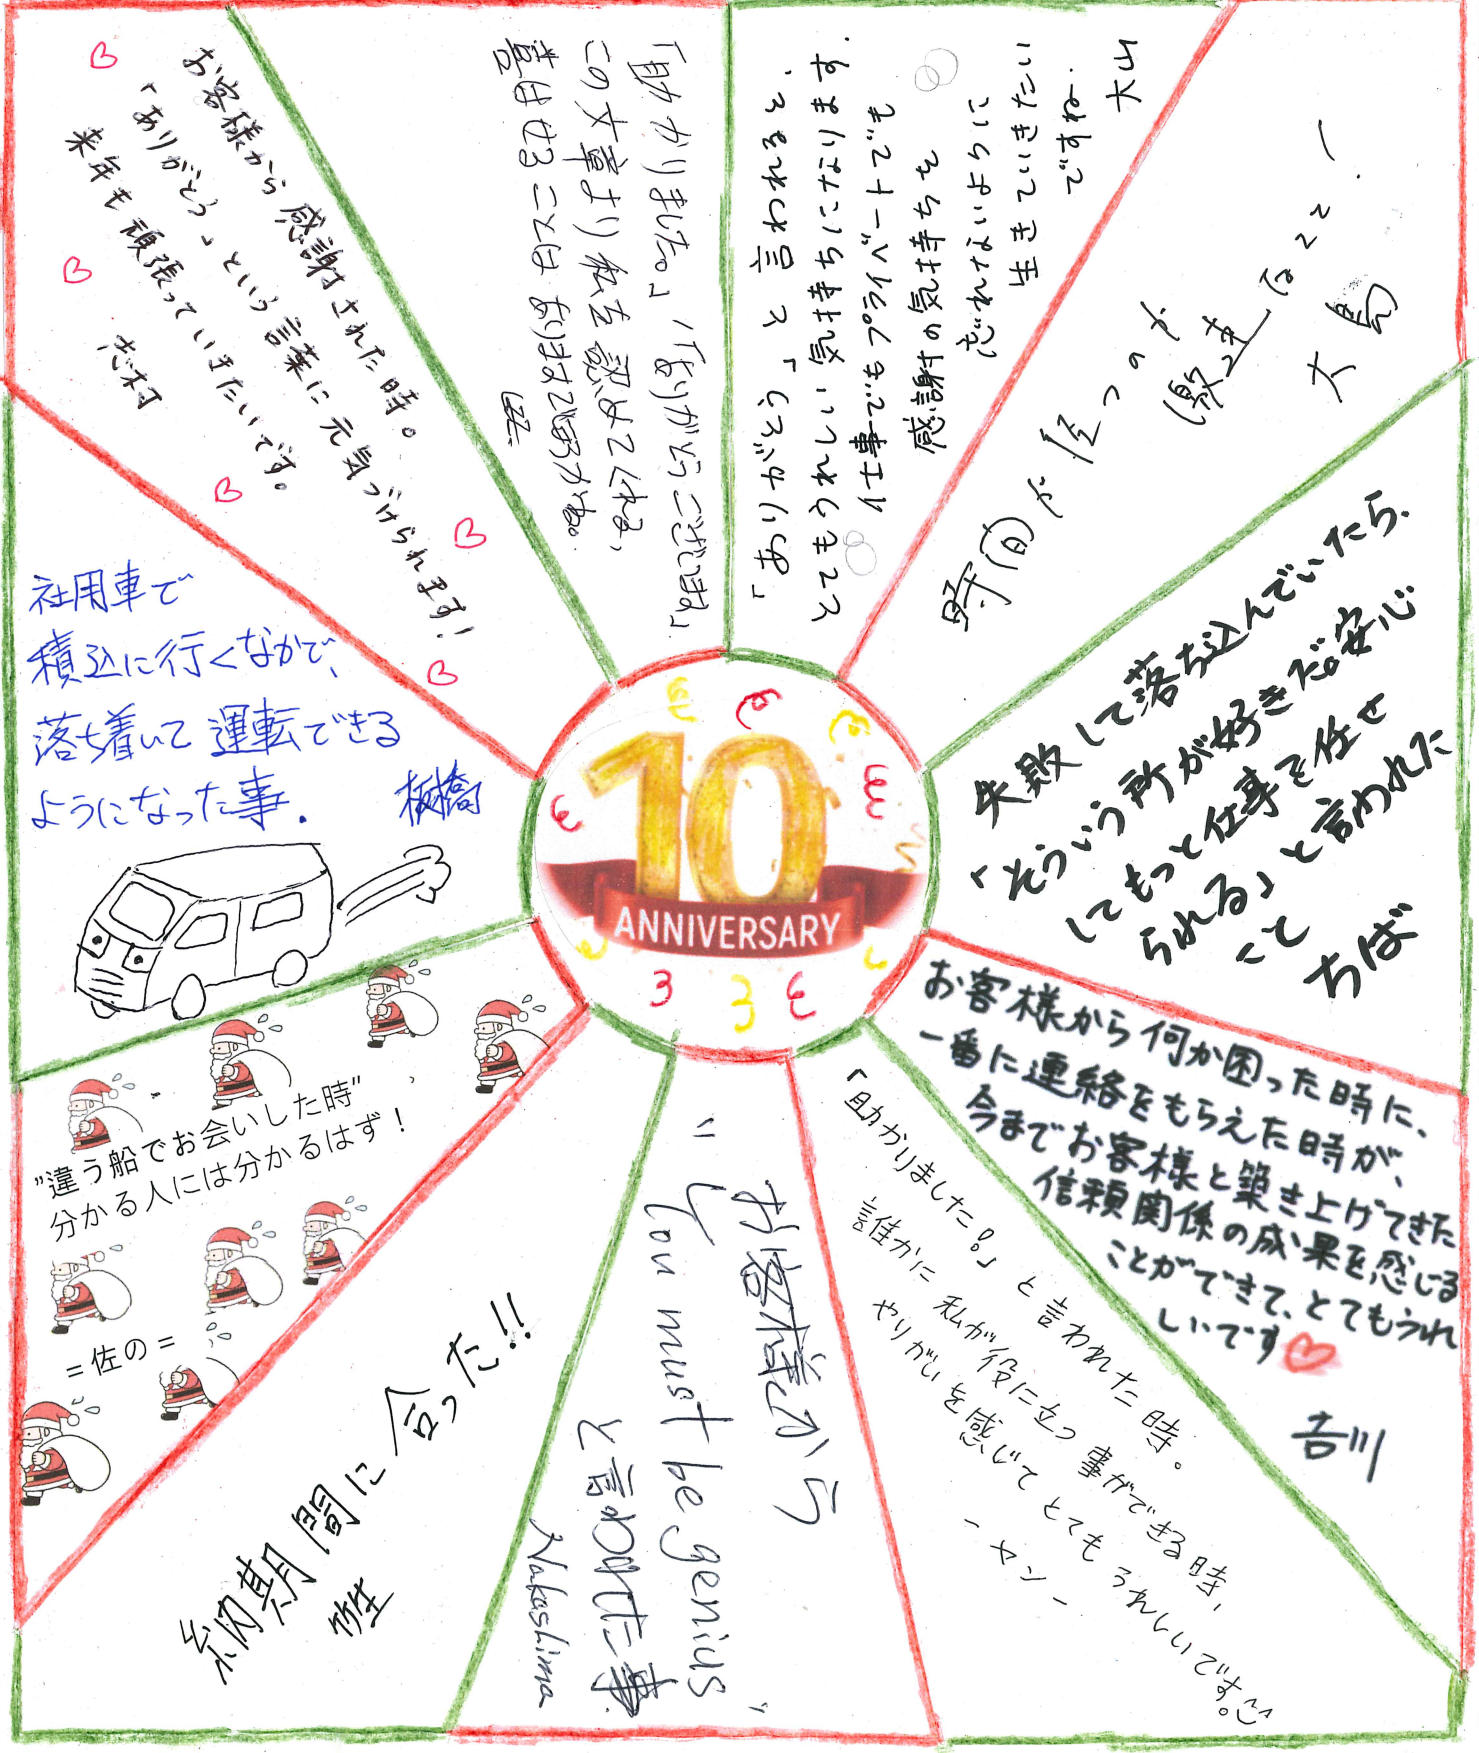 お客様から感謝された時。
「ありがとう」という言葉に元気づけられます!
来年も頑張っていきたいです。
志村
「助かりました。」「ありがとうございます」
この文章より私を認めてくれる、
言葉はありますでしょうかね。
「ありがとう」と言われると、
とてもうれしい気持ちになります.
仕事でもプライベートでも
感謝の気持ちを
忘れないように
生きていきたい
ですね.
大山
時間が経つのが
大島
失敗して落ち込んでいたら、
「そういう所が好きだ。安心
してもっと仕事を任せ
られる」と言われた
こと
ちば
お客様から何か困った時に、
一番に連絡をもらえた時が、
今までお客様と築き上げてきた
信頼関係の成果を感じる
ことができて、とてもうれ
しいです
吉川
「助かりました!」と言われた時。
誰かに私が役に立つ事ができる時、
やりがいを感じてとてもうれしいです。
-ヤン-
お客様から
"You must be genius"
と言われた事.
Nakashima
納期間に合った!!
"違う船でお会いした時"
分かる人には分かるはず!
=佐の=
社用車で
積込に行くなかで、
落ち着いて運転できる
ようになった事.
板橋
10
ANNIVERSARY